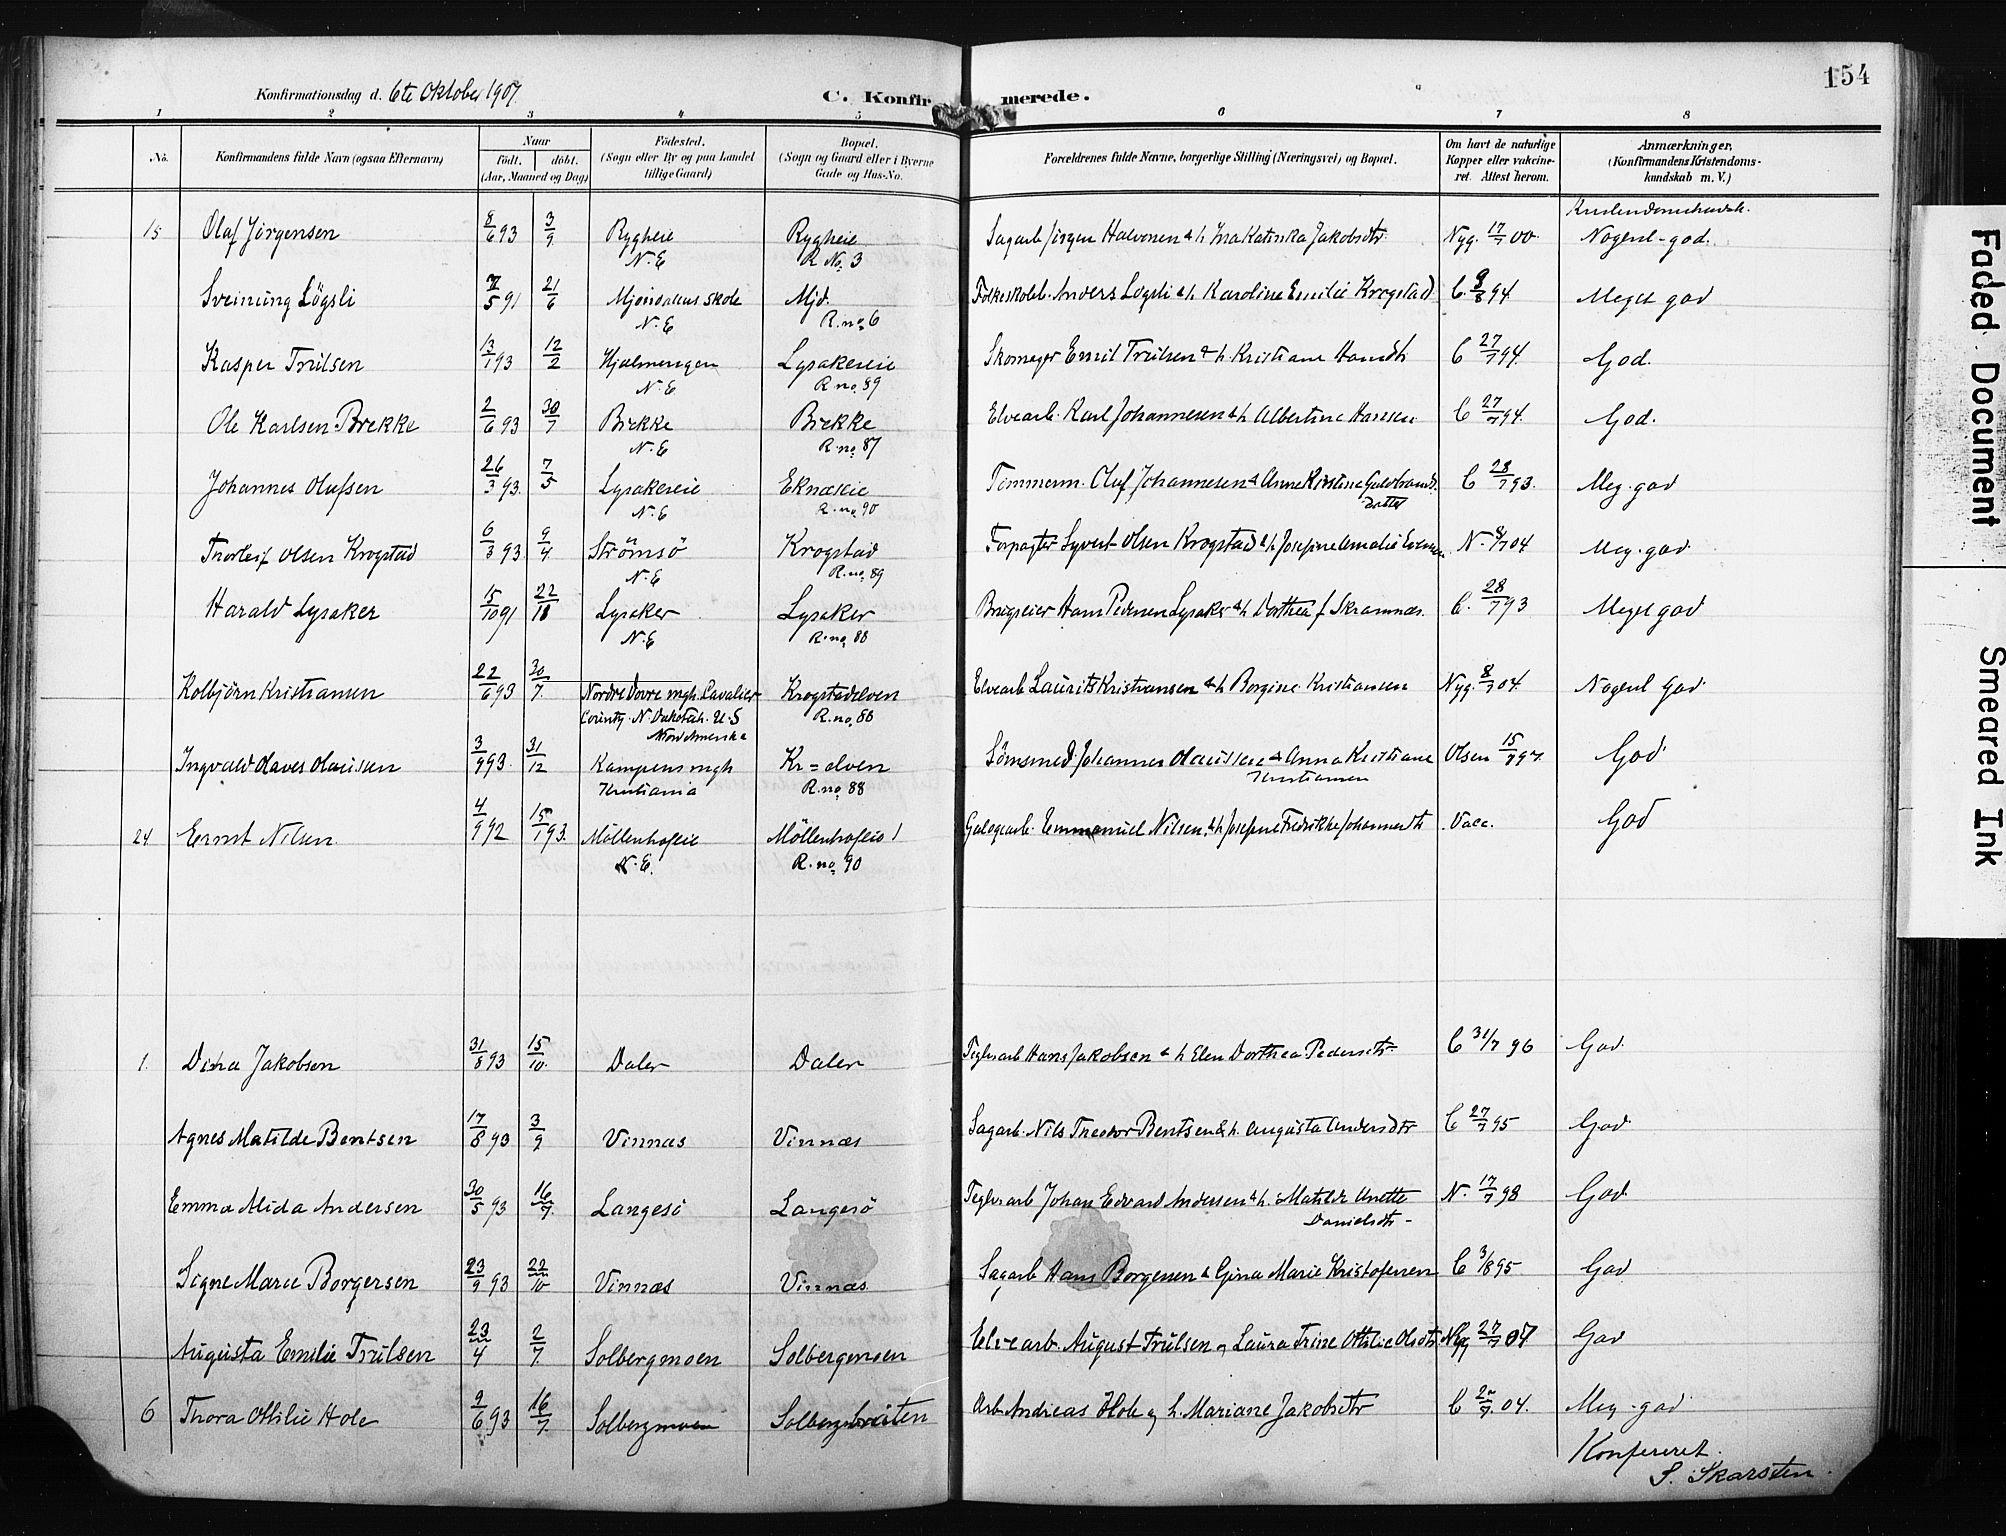 154
Konfirmationsdag d. 6te Oktober 1907.
C. Konfir merede.
1 2 3 4 5 6 7 8
No. Konfirmandens fulde Navn (ogsaa Efternavn) Naar födt. döbt. (Aar, Maaned og Dag) Födested. (Sogn eller By og paa Landet tillige Gaard) Bopæl. (Sogn og Gaard eller i Byerne Gade og Hus-No. Forældrenes fulde Navne, borgerlige Stilling (Næringsvei) og Bopæl. Om havt de naturlige Kopper eller vakcineret. Attest herom. Anmærkninger, (Konfirmandens Kristendomskundskab m. V.)
15 Olaf Jörgensen 8/6 93 3/9 Rygheie N. E Rygheie R No. 3 Sagarb Jörgen Halvorsen & h. Ina Katinka Jakobsdtr. Nyg. 17/7 00. Nogenl-god.
Sveinung Lögsli 7/5 91 21/6 Mjöndalens skole N. E Mjd. R. no. 6 Folkeskolel. Anders Logsli & h Karoline Emilie Krogstad C. 9/8 94. Meget god
Kasper Trulsen 13/1 93 12/2 Hjelmengen N. E Lysakereie R no. 89 Skomager Emil Trulsen & h. Kristiane Hansdtr C 27/7 94. God.
Ole Karlsen Brekke 2/6 93 30/7 Brekke N. E Brekke R. no. 87 Elvearb. Karl Johannesen & h Albertine Hansen C 27/7 94. God.
Johannes Olufsen 26/3 93. 7/5 Lysakereie N. E Eknæseie R. no. 90 Tömmerm. Oluf Johannesen & Anne Kristine Guldbrands datter C 28/7 93. Meg. god
Thorleif Olsen Krogstad 6/3 93. 9/4 Strömsö N. E Krogstad R. no. 89 Forpagter Syvert Olsen Krogstad & h. Josefine Amalie N. 8/7 04 Meg. god
Harald Lysaker 15/10 91 22/18 Lysaker N. E Lysaker R. no. 88 Brugseier Hans Pedersen Lysaker & h. Dorthea f. Skramnæs. C. 28/7 93 Meget god
Kolbjörn Kristiansen 22/6 93 30/7. Nordre Dovre mgh. Cavalier County. N. Dakotah. U. S Nordamerika Krogstadelven R. no. 88 Elvearb. Laurits Kristiansen & h Borgine Kristiansen Nyg. 8/7 04. Nogenl God
Ingvald Olaves Olaussen 3/9 93. 31/12 Kampens mgh Kristiania Kr=elven R. no. 88 Johannes Olaussen & Anna Kristiane Kristiansen Olsen 15/7 97. God
24 Ernst Nilsen 4/9 92 15/1 93. Möllenhofeie N. E. Möllenhofeie R. no. 90 Emmanuel Nilsen, & h Josefine Fredrikke Johannesdtr. Vacc. God
1. Dina Jakobsen 31/8 93 15/10. Daler Daler Teglv.arb Hans Jakobsen & h Elen Dorthea Pedersdtr. C 31/7 96 God.
Agnes Matilde Bentsen 17/8 93 3/9 Vinnæs Vinnæs Sagarb. Nils Theodor Bentsen & h. Augusta Andersdtr C 27/7 95 God.
Emma Alida Andersen 30/5 93 16/7. Langesö Langesö Teglv.arb Johan Edvard Andersen & h. Matilde Anette Danielsdtr - N. 17/7 98 God.
Signe Marie Borgersen 23/9 93 22/10 Vinnæs Vinnæs. Sagarb Hans Borgersen & Gina Marie Kristofersen C 3/8 95 God
Augusta Emilie Trulsen 23/4 2/7. Solbergmoen Solbergmoen Elvearb. August Trulsen og Laura Trine Othilie Olsdtr. Nyg 27/7 07 God
6 Thora Othilie Hole 9/6 93 16/7. Solbergmoen Solbergbraaten Arb. Andreas Hole og h. Mariane Jakobsdtr C 04. Meg-god
Konfereret.
S. Skarsten.
Faded Document
Smeared Ink